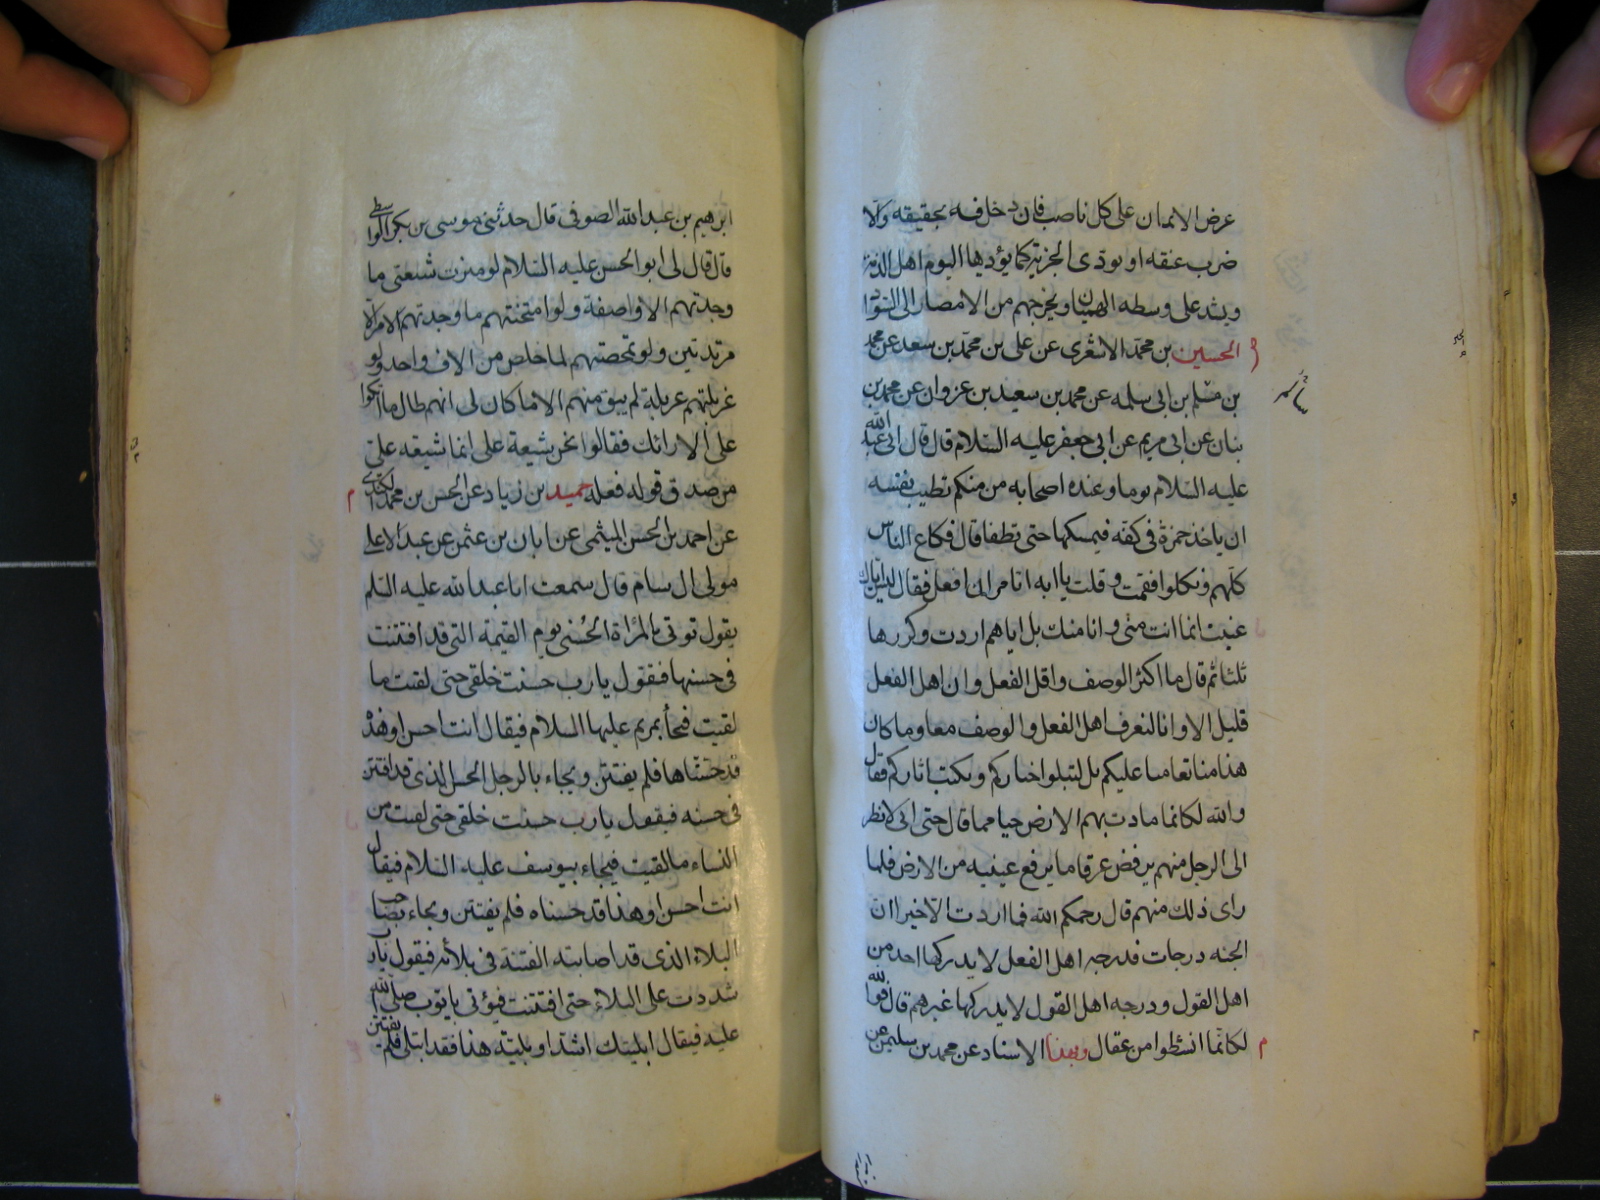 عرض الايمان على كل ناصب فان دخل فيه بحقيقه والا
ضرب عنقه او يودّى الجزية كما يؤديها اليوم اهل الذمة
ويشد على وسطه الهميان ويخرجهم من الامصار الى السواد
الحسين بن محمّد الاشعرى عن على بن محمّد بن سعد عن محمد
بن مسلم بن ابى سلمه عن محمد بن سعيد بن غزوان عن محمد بن
بنان عن ابى مريم عن ابى جعفر عليه السّلام قال قال ابى
عليه السّلام يوما وعنده اصحابه من منكم تطيب نفسه
ان ياخذ جمرة فى كفه فيمسكها حتى تطفا قال فكاع الناس
كلهم ونكلوا فقمت وقلت يا ابه اتامر ان افعل فقال ليس اياك
عنيت انما انت منّى وانا منك بل اياهم اردت وكررها
ثلثا ثم قال ما اكثر الوصف واقل الفعل وان اهل الفعل
قليل الا وانا لنعرف اهل الفعل والوصف معا وما كان
هذا منا تعاميا عليكم بل لنبلوا اخباركم ونكتب اثاركم فقال
والله لكانما مادت بهم الارض حيا مما قال حتى انى لانظر
الى الرجل منهم يرفض عرقا ما يرفع عينيه من الارض فلما
راى ذلك منهم قال رحمكم الله فما اردت الا خيرا ان
الجنه درجات فدرجه اهل الفعل لا يدركها احد من
اهل القول ودرجه اهل القول لا يدركها غيرهم قال فوالله
لكانّما انشطوا من عقال وبهذا الاسناد عن محمد بن سليمن عن
ابرهيم بن عبد الله الصوفى قال حدثنى موسى بن بكر الواسطى
قال قال لى ابو الحسن عليه السّلام لو ميزت شيعتى ما
وجدتهم الا واصفة ولو امتحنتهم ما وجدتهم الا
مرتدين ولو تمحصتهم لما خلص من الالف واحد ولو
غربلتهم غربلة لم يبق منهم الا ما كان لى انهم طال ما اتكوا
على الارائك فقالوا نحن شيعة على انما شيعه على
من صدق قوله فعله حميد بن زياد عن الحسن بن محمد الكندى
عن احمد بن الحسن الميثمى عن ابان بن عثمن عن عبد الاعلى
مولى ال سام قال سمعت ابا عبد الله عليه السلم
يقول توتى بالمراة الحسنى يوم القيمة التى قد افتتنت
فى حسنها فتقول يا رب حسنت خلقى حتى لقيت ما
لقيت فيجاٰ بمريم عليها السلام فيقال انت احسن او هذه
قد حسّناها فلم يفتتن ويجاء بالرجل الحسن الذى قد افتتن
فى حسنه فيقول يا رب حسنت خلقى حتى لقيت من
النساء ما لقيت فيجاء بيوسف عليه السلام فيقال
انت احسن او هذا قد حسناه فلم يفتتن ويجاء بصاحب
البلاء الذى قد اصابته الفتنة فى بلائه فيقول يا رب
شددت على البلاء حتى افتتنت فيؤتى بايوب صلى الله
عليه فيقال ابليتك اشد او بليته هذا فقد ابتلى فلم يفتتن